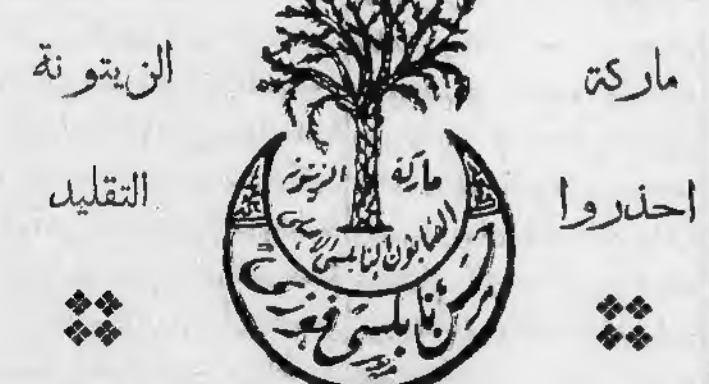 ماركة الزيتونة
احذروا التقليد
ماركة الزيتونة
الصابون النابلسي الاصلي
نابلسي فوزي